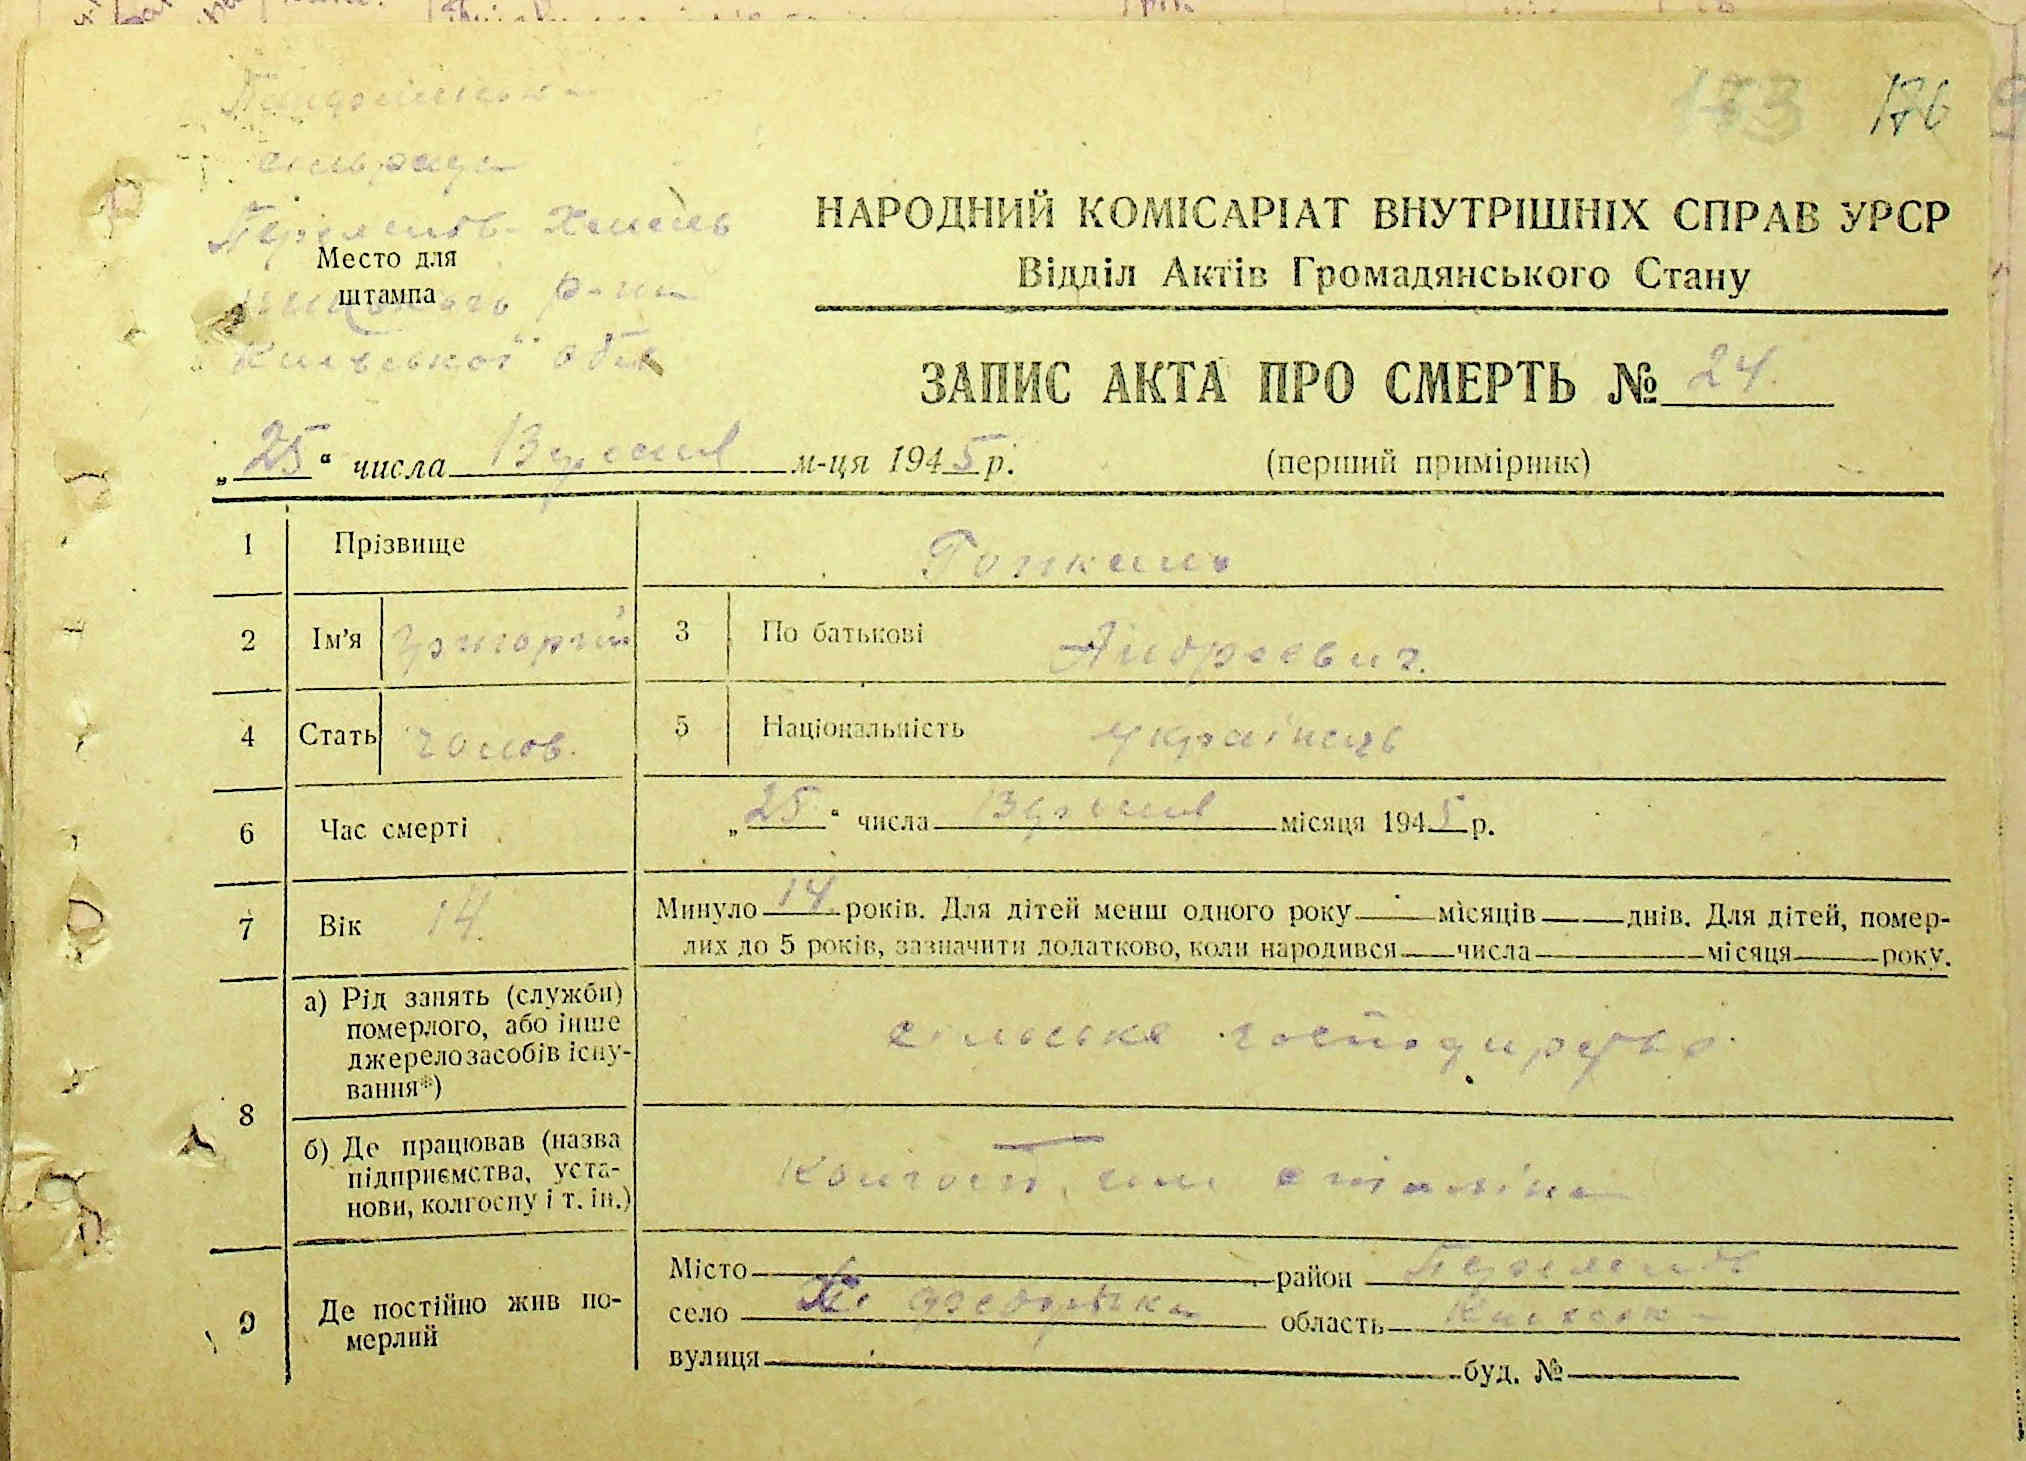 173 176
сільрада
Переяслав-Хмель
Место для
штампа
ницького р-ну
Київської обл
НАРОДНИЙ КОМІСАРІАТ ВНУТРІШНІХ СПРАВ УРСР
Відділ Актів Громадянського Стану
ЗАПИС АКТА ПРО СМЕРТЬ № 24.
„25“ числа Вересня м-ця 1945 р. (перший примірник)
1 Прізвище
2 Ім’я Григорій 3 По батькові Андреевич.
4 Стать Чолов. 5 Національність українець
6 Час смерті „25“ числа Вересня місяця 1945 р.
7 Вік 14. Минуло 14 років. Для дітей менш одного року — місяців — днів. Для дітей, помер-
лих до 5 років, зазначити додатково, коли народився — числа — місяця — року.
8 а) Рід занять (служби)
померлого, або інше
джерело засобів існу-
вання*)
сільське господарство
б) Де працював (назва
підприємства, уста-
нови, колгоспу і т. ін.)
Колгосп ім Сталіна
9 Де постійно жив по-
мерлий
Місто район Переяслав
село область Київська
вулиця буд. №